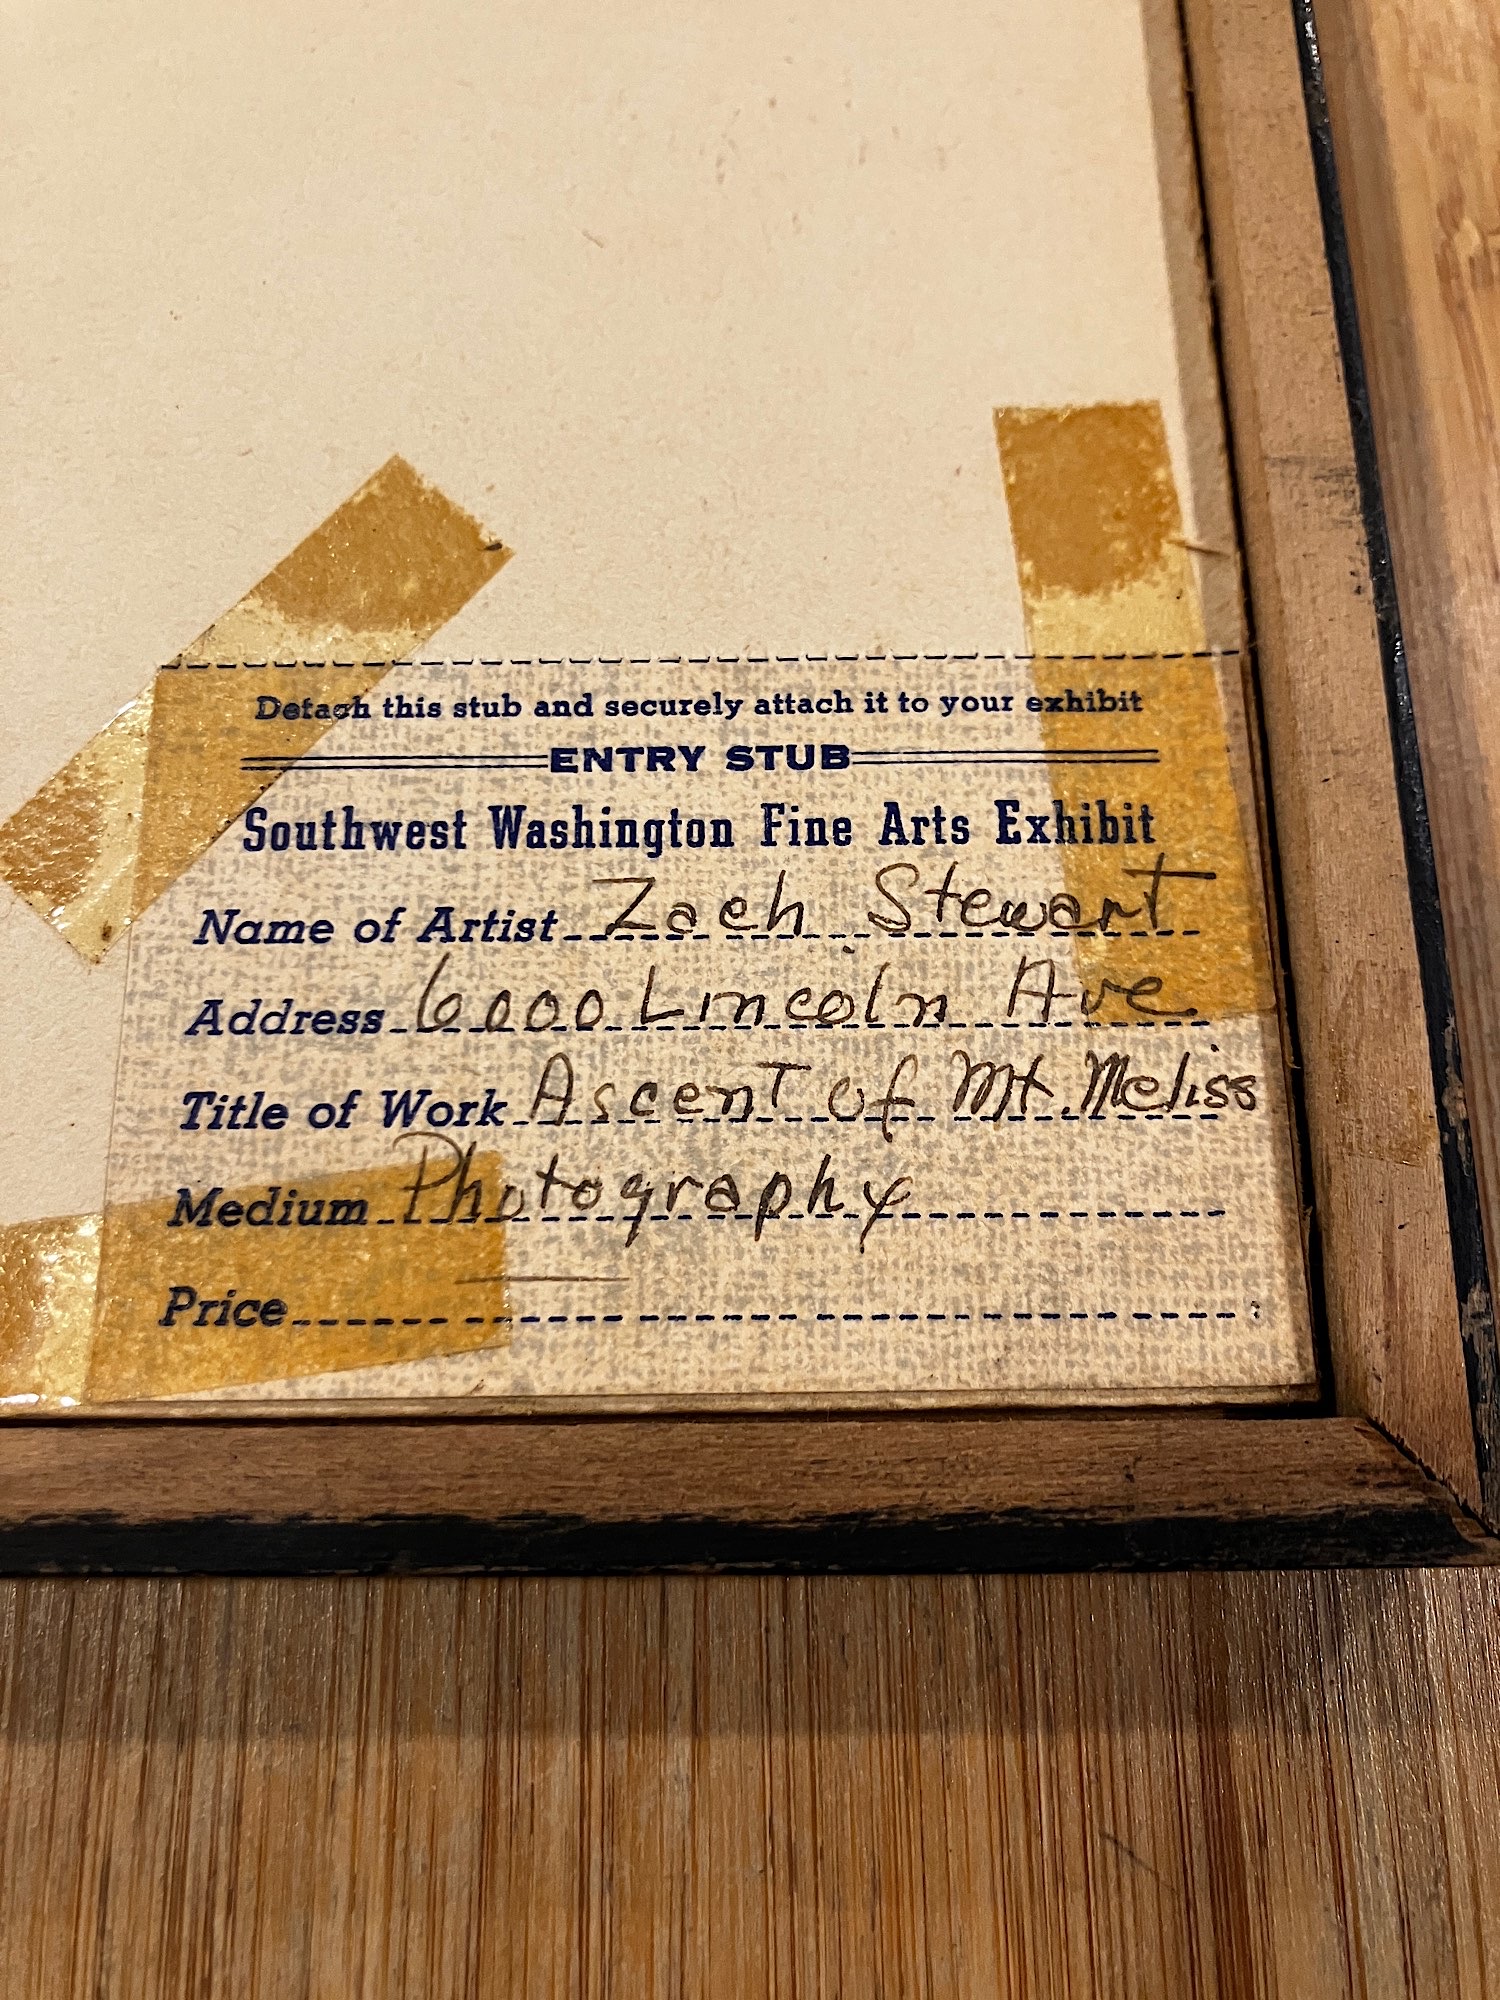 Detach this stub and securely attach it to your exhibit
ENTRY STUB
Southwest Washington Fine Arts Exhibit
Name of Artist Zach Stewart
Address 6000 Lincoln Ave
Title of Work Ascent of Mt. Meliss
Medium Photography
Price